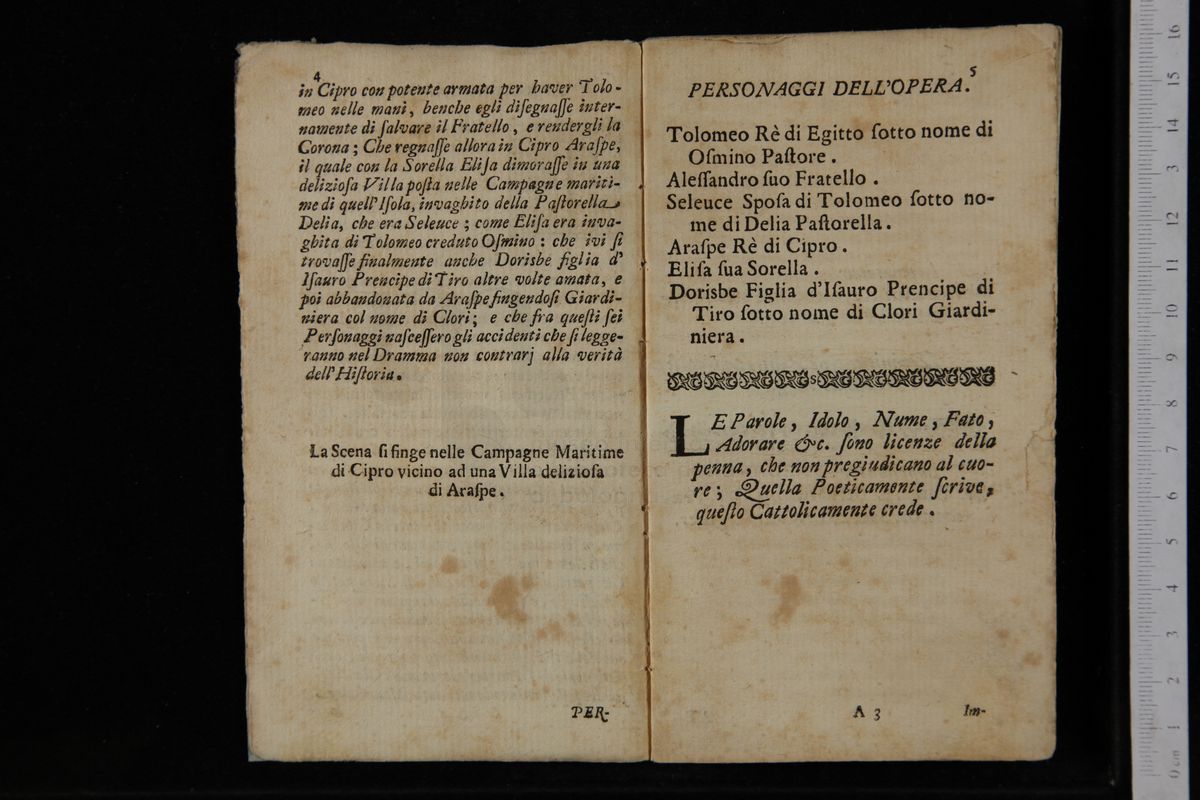 4
in Cipro con potente armata per haver Tolo-
meo nelle mani, benche egli diſegnaſſe inter-
namente di ſalvare il Fratello, e rendergli la
Corona; Che regnaſſe allora in Cipro Araſpe,
il quale con la Sorella Eliſa dimoraſſe in una
delizioſa Villa poſta nelle Campagne mariti-
me di quell'Iſola, invaghito della Paſtorella
Delia, che era Seleuce; come Eliſa era inva-
ghita di Tolomeo creduto Oſmino: che ivi ſi
trovaſſe finalmente anche Dorisbe figlia d'
Iſauro Prencipe di Tiro altre volte amata, e
poi abbandonata da Araſpe fingendoſi Giardi-
niera col nome di Clori; e che fra queſti ſei
Perſonaggi naſceſſero gli accidenti che ſi legge-
ranno nel Dramma non contrarj alla verità
dell'Hiſtoria.
La Scena ſi finge nelle Campagne Maritime
di Cipro vicino ad una Villa delizioſa
di Araſpe.
PER-
5
PERSONAGGI DELL'OPERA.
Tolomeo Rè di Egitto ſotto nome di
Oſmino Paſtore.
Aleſſandro ſuo Fratello.
Seleuce Spoſa di Tolomeo ſotto no-
me di Delia Paſtorella.
Araſpe Rè di Cipro.
Eliſa ſua Sorella.
Dorisbe Figlia d'Iſauro Prencipe di
Tiro ſotto nome di Clori Giardi-
niera.
LE Parole, Idolo, Nume, Fato,
Adorare &c. ſono licenze della
penna, che non pregiudicano al cuo-
re; Quella Poeticamente ſcrive,
queſto Cattolicamente crede.
A 3
Im-
0 cm 1 2 3 4 5 6 7 8 9 10 11 12 3 14 15 16